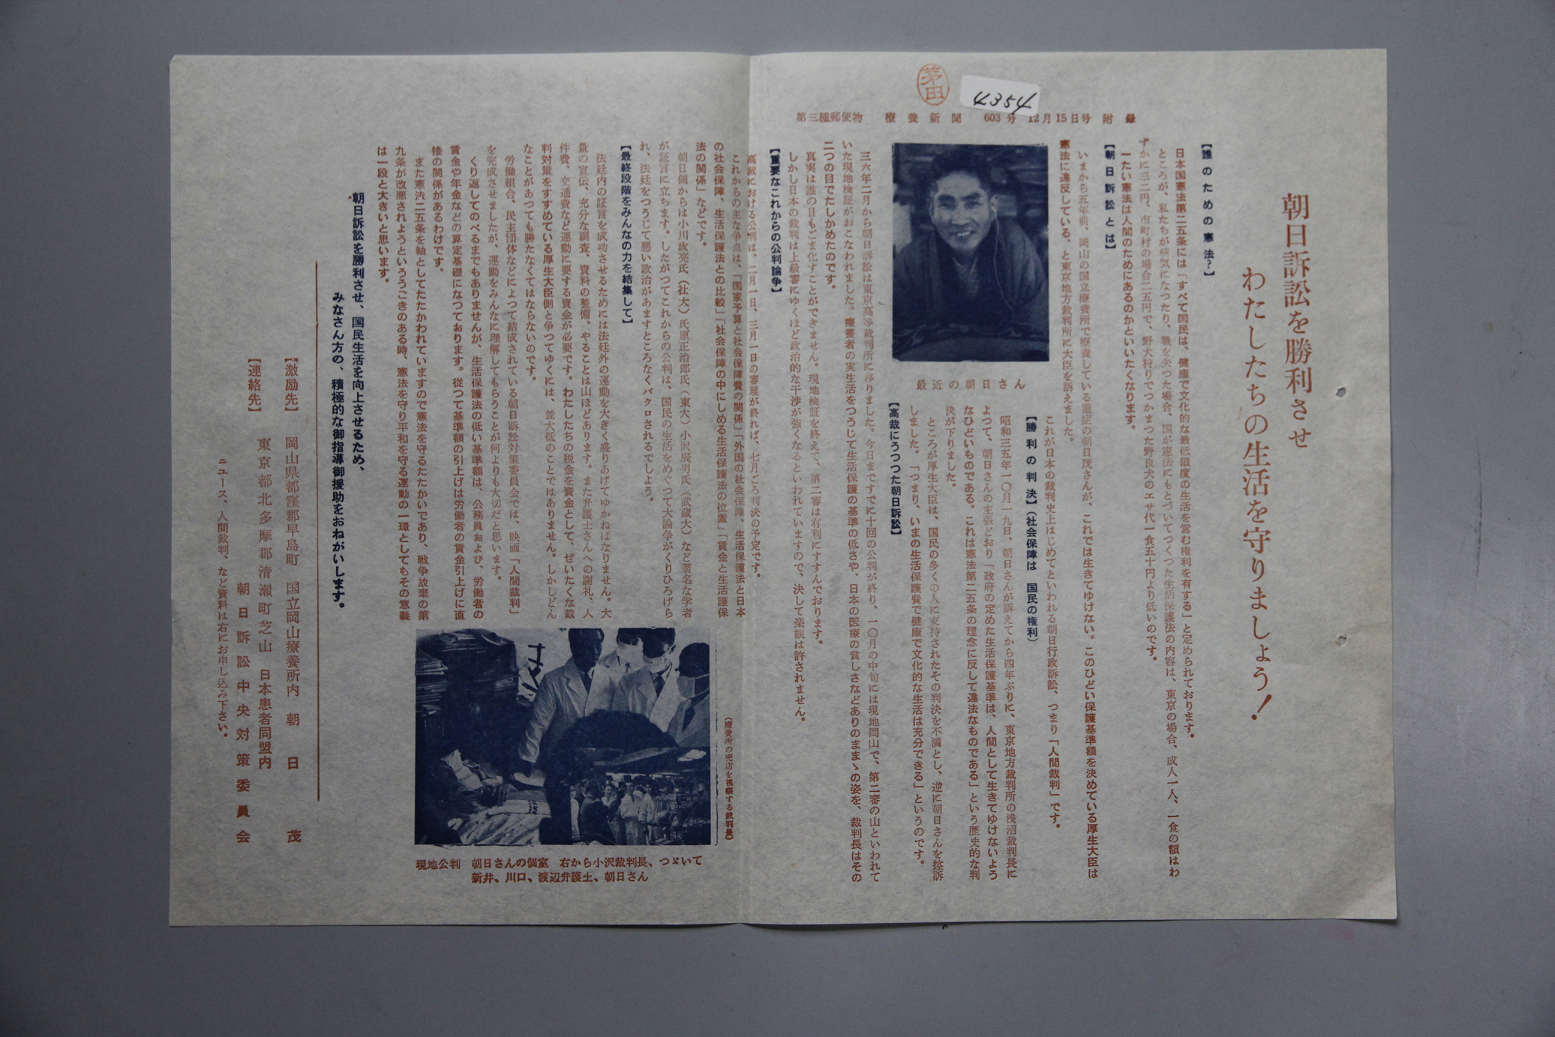 茅田
4354
第三種郵便物 療養新聞 603号 12月15日号 附録
朝日訴訟を勝利させ
わたしたちの生活を守りましよう!
【誰のための憲法?】
日本国憲法第二五条には「すべて国民は、健康で文化的な最低限度の生活を営む権利を有する」と定められております。
ところが、私たちが病気になつたり、職を失つた場合、国が憲法にもとづいてつくつた生活保護法の内容は、東京の場合、成人一人、一食の額はわ
ずかに三二円、市町村の場合二五円で、野犬狩りでつかまつた野良犬のエサ代一食五十円より低いのです。
一たい憲法は人間のためにあるのかといいたくなります。
【朝日訴訟とは】
いまから五年前、岡山の国立療養所で療養している重症の朝日茂さんが、これでは生きてゆけない。このひどい保護基準額を決めている厚生大臣は
憲法に違反している、と東京地方裁判所に大臣を訴えました。
これが日本の裁判史上はじめてといわれる朝日行政訴訟、つまり「人間裁判」です。
【勝利の判決】(社会保障は 国民の権利)
昭和三五年一〇月一九日、朝日さんが訴えてから四年ぶりに、東京地方裁判所の浅沼裁判長に
よつて、朝日さんの主張どおり「政府の定めた生活保護基準は、人間として生きてゆけないよう
なひどいものである。これは憲法第二五条の理念に反して違法なものである」という歴史的な判
決が下りました。
ところが厚生大臣は、国民の多くの人に支持されたその判決を不満とし、逆に朝日さんを控訴
しました。「つまり、いまの生活保護費で健康で文化的な生活は充分できる」というのです。
最近の朝日さん
【高裁にうつつた朝日訴訟】
三六年二月から朝日訴訟は東京高等裁判所に移りました。今日まですでに十回の公判が終り、一〇月の中旬には現地岡山で、第二審の山といわれて
いた現地検証がおこなわれました。療養者の実生活をつうじて生活保護の基準の低さや、日本の医療の貧しさなどありのままゝの姿を、裁判長はその
二つの目でたしかめたのです。
真実は誰の目もごま化すことができません。現地検証を終えて、第二審は有利にすすんでおります。
しかし日本の裁判は上級審にゆくほど政治的な干渉が強くなるといわれていますので、決して楽観は許されません。
【重要なこれからの公判論争】
高裁における公判は、二月一日、三月一日の審理が終れば、七月ごろ判決の予定です。
これからの主な争点は、「国家予算と社会保障費の関係」「外国の社会保障、生活保護法と日本
の社会保障、生活保護法との比較」「社会保障の中にしめる生活保護法の位置」「賃金と生活護保
法の関係」などです。
朝日側からは小川政亮氏、(社大)氏原正治郎氏、(東大)小沢辰男氏(武蔵大)など著名な学者
が証言に立ちます。したがつてこれからの公判は、国民の生活をめぐつて大論争がくりひろげら
れ、法廷をつうじて悪い政治はあますところなくバクロされるでしよう。
【最終段階をみんなの力を結集して】
法廷内の証言を成功させるためには法廷外の運動を大きく盛りあげてゆかねばなりません。大
量の宣伝、充分な調査、資料の整備、やることは山ほどあります。また弁護士さんへの謝礼、人
件費、交通費など運動に要する資金が必要です。わたしたちの税金を資金として、ぜいたくな裁
判対策をすすめている厚生大臣側と争つてゆくには、並大低のことではありません。しかしどん
なことがあつても勝たなくてはならないのです。
労働組合、民主団体などによつて結成されている朝日訴訟対策委員会では、映画「人間裁判」
を完成させましたが、運動をみんなに理解してもらうことが何よりも大切だと思います。
くり返してのべるまでもありませんが、生活保護法の低い基準額は、公務員および、労働者の
賃金や年金などの算定基礎になつております。従つて基準額の引上げは労働者の賃金引上げに直
接の関係があるわけです。
また憲法二五条を軸としてたたかわれていますので憲法を守るたたかいであり、戦争放棄の第
九条が改悪されようというううごきのある時、憲法を守り平和を守る運動の一環としてもその意義
は一段と大きいと思います。
(療養所の売店を視察する裁判長)
現地公判 朝日さんの個室 右から小沢裁判長、つゞいて
新井、川口、渡辺弁護士、朝日さん
朝日訴訟を勝利させ、国民生活を向上させるため、
みなさん方の、積極的な御指導御援助をおねがいします。
【激励先】 岡山県都窪郡早島町 国立岡山療養所内 朝日茂
【連絡先】 東京都北多摩郡清瀬町芝山 日本患者同盟内
朝日訴訟中央対策委員会
ニュース、人間裁判、など資料は左にお申し込み下さい。